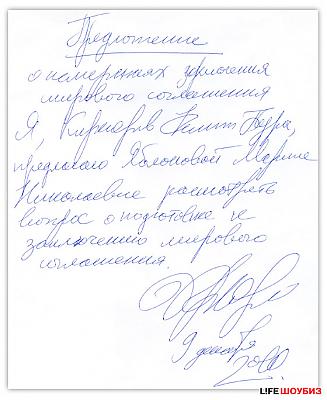 Предложение
о намерениях заключения
мирового соглашения
Я, Киркоров Филипп Бедрос,
предлагаю Яблоковой Марине
Николаевне рассмотреть
вопрос о подготовке к
заключению мирового
соглашения.
9 декабря
2010
L!FEШОУБИЗ